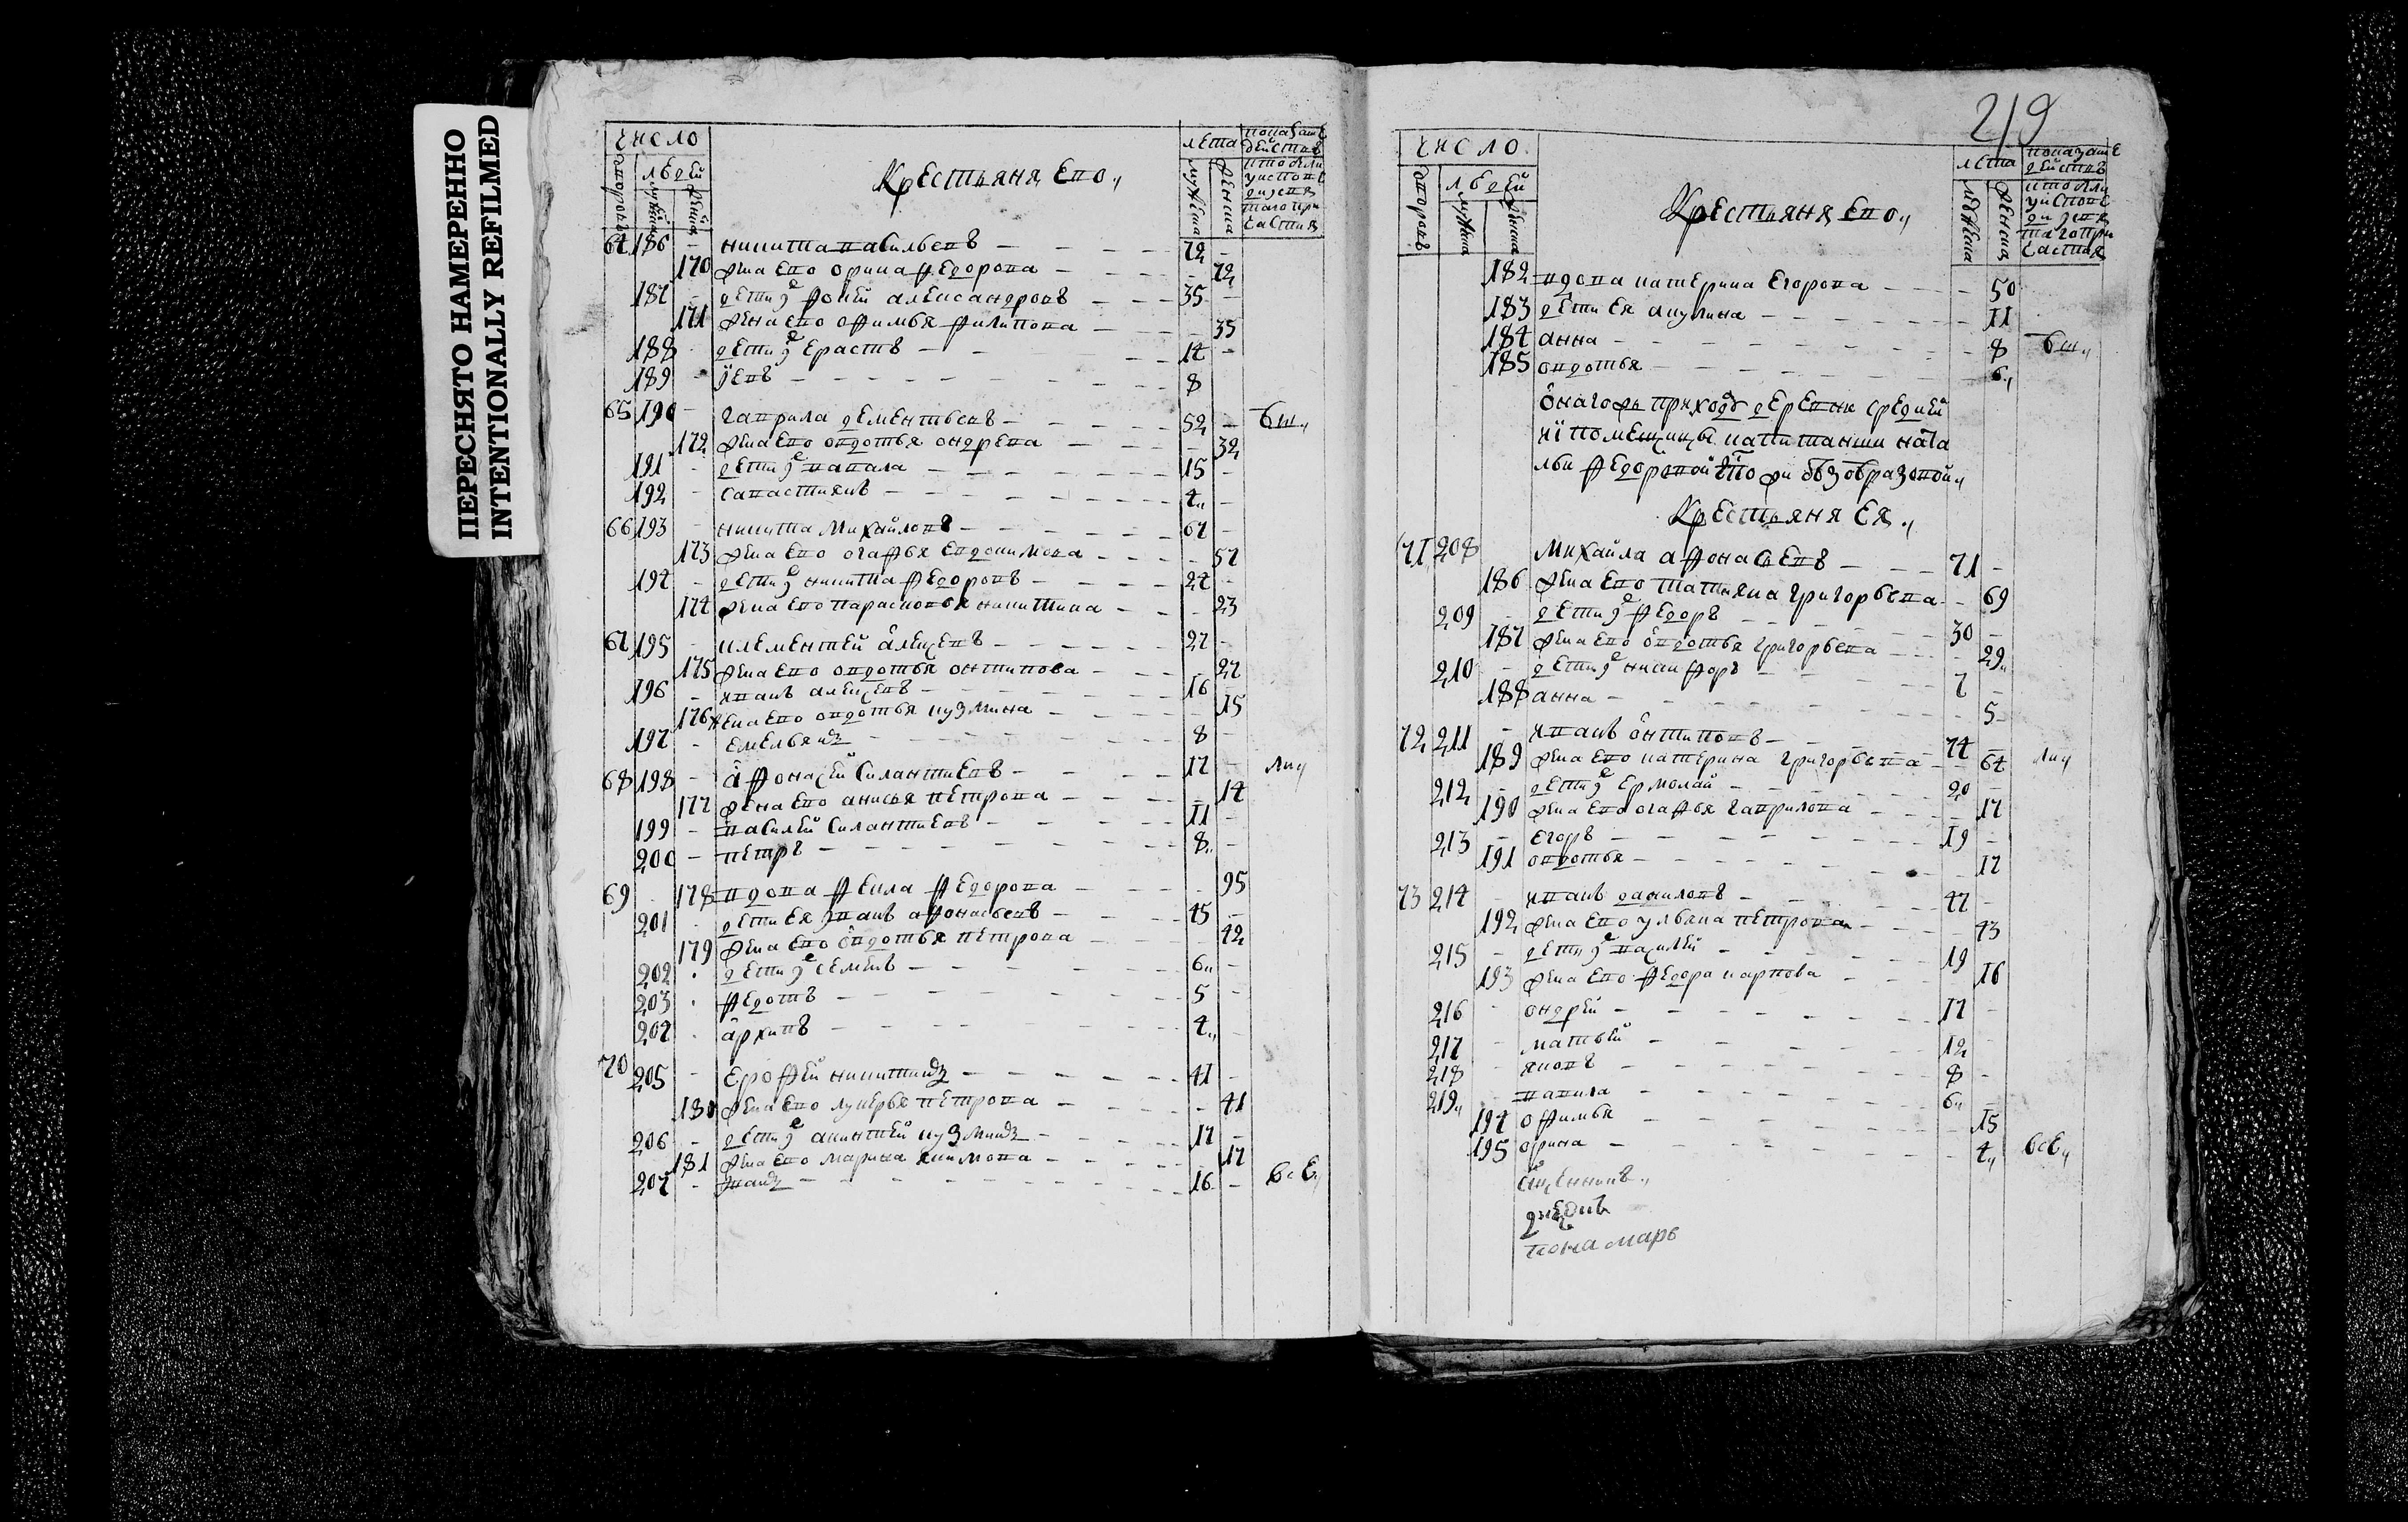 ПЕРЕСНЯТО НАМЕРЕННО
INTENTIONALLY REFILMED
число
людей
лета
Крестьяня ево
64 186 никита васильевъ 72
170 жена ево орина федорова 72
187 дети их фокей александровъ 35
171 жена ево офимья филипова 35
188 дети их ерастъ 14
189 иевъ 8
65 190 гаврила дементьевъ 52
172 жена ево овдотья ондрева 32
191 дети их вавила 15
192 савастиянъ 4
66 193 никита михайловъ 67
173 жена ево огафья евдокимова 57
194 дети их никита федоровъ 24
174 жена ево парасковья никитина 23
67 195 клементей алексеевъ 27
175 жена ево овдотья онтипова 27
196 иванъ алексеевъ 16
176 жена ево овдотья кузмина 15
197 емельянъ 8
68 198 афонасей силантиевъ 17
177 жена ево анисья петрова 14
199 василей силантиевъ 11
200 петръ 8
69 178 вдова фекла федорова 95
201 дети ея иванъ афонасьевъ 45
179 жена ево овдотья петрова 42
202 дети их семенъ 6
203 федотъ 5
204 архипъ 4
70 205 ерофей никитинъ 41
180 жена ево лукерья петрова 41
206 дети их акинтей кузминъ 17
181 жена ево марина якимова 17
207 иванъ 16
219
число
людей
лета
Крестьяня ево
182 вдова катерина егорова 50
183 дети ея акулина 11
184 анна 8
185 овдотья 6
онагожъ приходу деревни средней
помещицы капитанши ната
льи федоровой жены обзобразовой
Крестьяня ея
71 208 михайла афонасьевъ 71
186 жена ево татияна григорьева 69
209 дети их федоръ 30
187 жена ево овдотья григорьева 29
210 дети их никифоръ 7
188 анна 5
72 211 иванъ онтиповъ 74
189 жена ево катерина григорьева 64
212 дети их ермолай 20
190 жена ево огафья гаврилова 17
213 егоръ 19
191 овдотья 17
73 214 иванъ даниловъ 47
192 жена ево ульяна петрова 43
215 дети их василей 19
193 жена ево федора карпова 16
216 ондрей 17
217 матвей 12
218 яковъ 8
219 вавила 6
194 офимья 15
195 орина 4
священникъ
пономарь